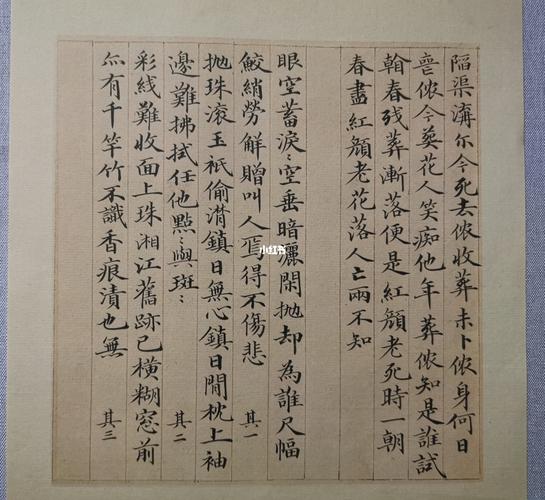 陷渠溝尔今死去侬收葬未卜侬身何日
喪侬今葬花人笑痴他年葬侬知是誰試
翰春残葬漸落便是紅顏老死時一朝
春盡紅顏老花落人亡兩不知
眼空蓄淚〻空垂暗灑閑抛却為誰尺幅
鮫綃勞解贈叫人焉得不傷悲 其一
抛珠滚玉衹偷潸鎮日無心鎮日閒枕上袖
邊難拂拭任他點〻與斑〻 其二
彩线難收面上珠湘江舊跡已橫糊窓前
亦有千竿竹不識香痕漬也無 其三
小红书